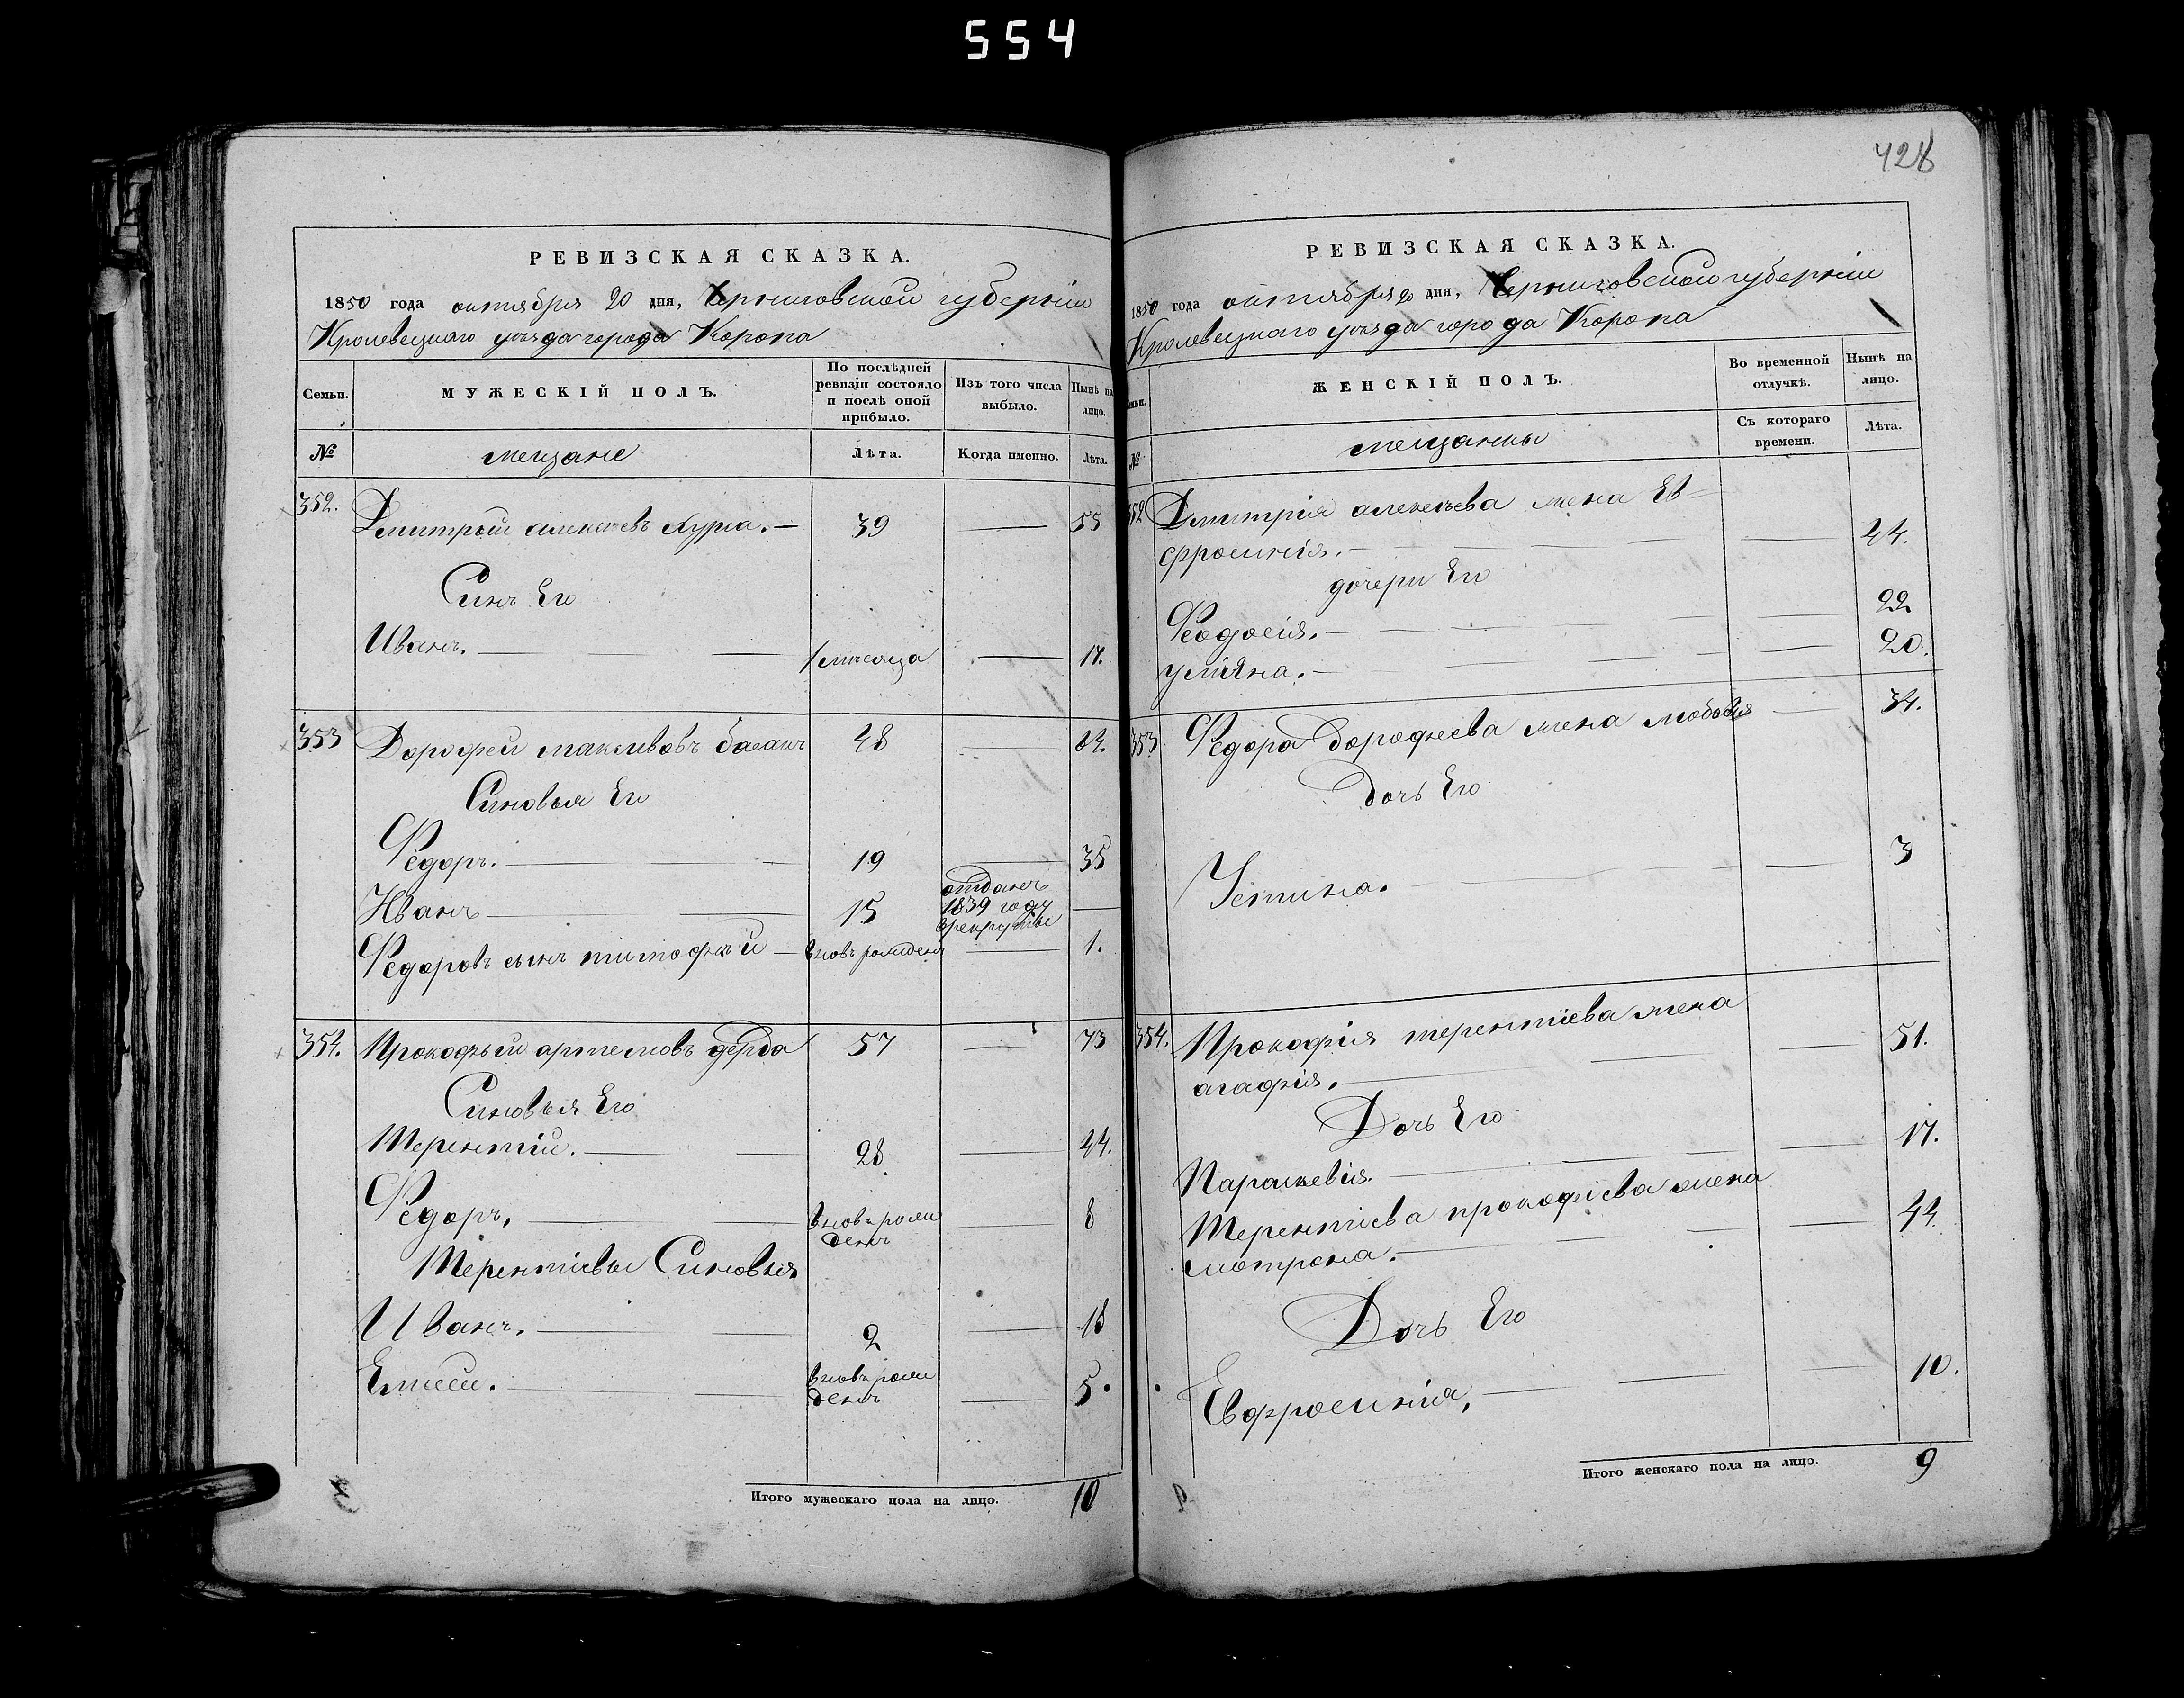 554
428
РЕВИЗСКАЯ СКАЗКА.
1850 года октября 20 дня, Черниговской губернiи
Кролевецкаго уѣзда города Коропа
Семьи.
МУЖЕСКІЙ ПОЛЪ.
По послѣдней ревизіи состояло и послѣ оной прибыло.
Изъ того числа выбыло.
Нынѣ на лицо.
№
мещане
Лѣта.
Когда именно.
Лѣта.
352. Дмитрий алексѣевъ — 39 — 55
Синъ Его
Иванъ. — 1 мѣсяца — 17.
353 Дорофей 48 — 64.
Синовья Его
Федоръ. — 19 — 35
Иванъ — 15 отданъ 1839 году врекруты —
Федоровъ сынъ тимофѣй — вновь рожденъ — 1.
354. Прокофѣй артемовъ дерда 57 — 73
Синовья Его
Терентiй. — 28 — 44.
Федоръ, — вновь рожденъ — 8
Терентiевы Синовья
Иванъ. — 2 — 18
Елисей. — вновь рожденъ — 5.
Итого мужескаго пола на лицо. 10
РЕВИЗСКАЯ СКАЗКА.
1850 года октября 20 дня, Черниговской губернiи
Кролевецкаго уѣзда города Коропа
Семьи.
ЖЕНСКІЙ ПОЛЪ.
Во временной отлучкѣ.
Нынѣ на лицо.
№
мещанки
Съ котораго времени.
Лѣта.
352 Дмитрiя алексѣева жена Ев=
фросинiя. — — 44.
дочери Его
Феодосiя. — — 22
улiяна. — — 20.
353 Федора Дорофеева жена любовья — 34.
Дочь Его
Устина. — — 3
354. Прокофiя терентiева жена
агафiя. — — 51.
Дочь Его
Параскевiя. — — 17.
Терентiева прокофiева жена
мотрона. — — 44.
Дочь Его
Евфросинiя, — — 10.
Итого женскаго пола на лицо. 9